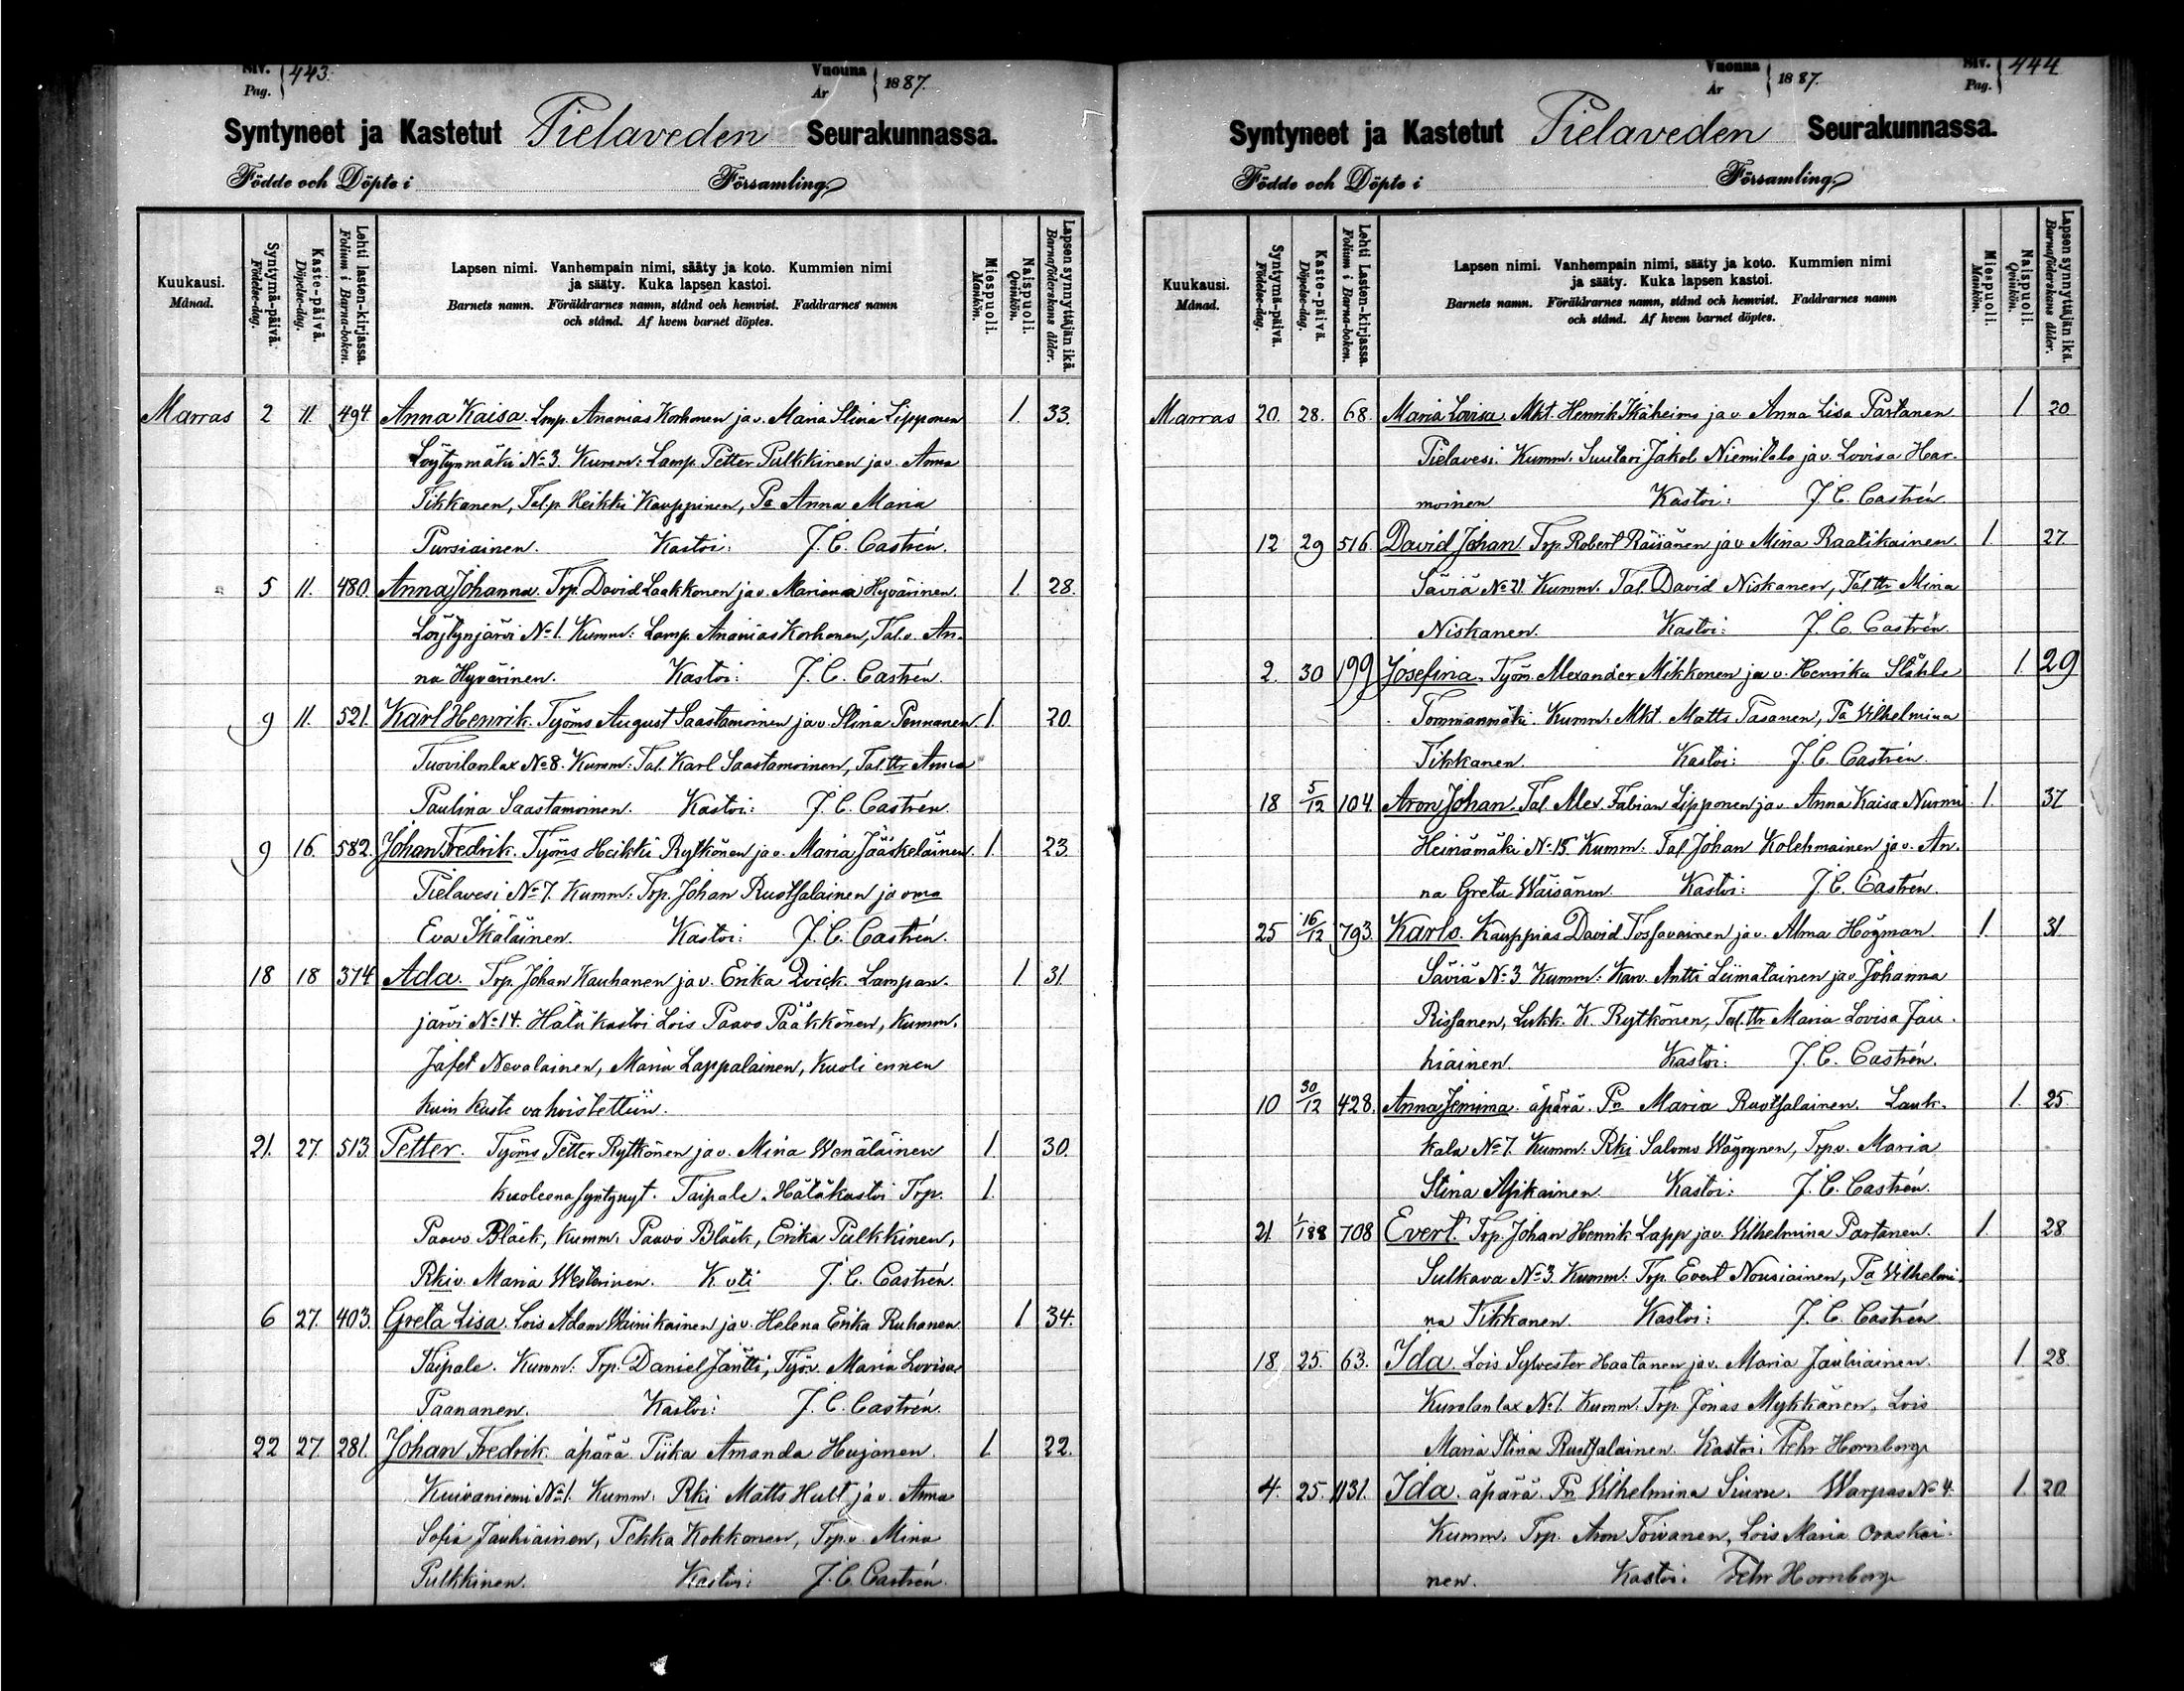 Siv. Pag. 443. Vuonna År 1887.
Syntyneet ja Kastetut Pielaveden Seurakunnassa.
Födde och Döpte i Församling.
Kuukausi. Månad.
Syntymä-päivä. Födelse-dag.
Kaste-päivä. Döpelse-dag.
Lehti lasten-kirjassa. Folium i Barna-boken.
Lapsen nimi. Vanhempain nimi, sääty ja koto. Kummien nimi
ja sääty. Kuka lapsen kastoi.
Barnets namn. Föräldrarnes namn, stånd och hemvist. Faddrarnes namn
och stånd. Af hvem barnet döptes.
Miespuoli. Mankön.
Naispuoli. Qvinkön.
Lapsen synnyttäjän ikä. Barnaföderskans ålder.
Marras 2 11. 494. Anna Kaisa. Lmp. Ananias Korhonen ja v. Maria Stina Lipponen 1. 33.
Löytynmäki No 3. Kumm: Lamp. Petter Pulkkinen ja v. Anna
Tikkanen, Tal.p. Heikki Kauppinen, Pa Anna Maria
Pursiainen. Kastoi: J. C. Castrén.
5 11. 480. Anna Johanna. Trp. David Laakkonen ja v. Mariana Hyvärinen. 1. 28.
Löytynjärvi No 1. Kumm: Lamp. Ananias Korhonen, Tal.v. An-
na Hyvärinen. Kastoi: J. C. Castrén.
9 11. 521. Karl Henrik. Työms August Saastamoinen ja v. Stina Pennanen. 1. 20.
Tuovilanlax No 8. Kumm: Tal. Karl Saastamoinen, Tal.ttr Anna
Paulina Saastamoinen. Kastoi: J. C. Castrén.
9 16. 582. Johan Fredrik. Työms Heikki Rytkönen ja v. Maria Jääskeläinen. 1. 23.
Pielavesi No 7. Kumm: Trp. Johan Ruotsalainen ja oma
Eva Ikäläinen. Kastoi: J. C. Castrén.
18 18 374 Ada. Trp. Johan Kauhanen ja v. Erika Qvick. Lampan- 1 31.
järvi No 14. Hätäkastoi Lois Paavo Pääkkönen, Kumm.
Jafet Nevalainen, Maria Lappalainen, Kuoli ennen
kuin kaste vahvistettiin.
21. 27. 513. Petter. Työms Petter Rytkönen ja v. Mina Wenäläinen 1. 30.
kuoleena syntynyt. Taipale. Hätäkastoi Trp. 1.
Paavo Bläck, Kumm. Paavo Bläck, Erika Pulkkinen,
Rkiv. Maria Westerinen. K oti J. C. Castrén.
6 27. 403. Greta Lisa. Lois Adam Wäinikainen ja v. Helena Erika Ruhanen. 1 34.
Taipale. Kumm: Trp. Daniel Jäntti, Työv. Maria Lovisa
Paananen. Kastoi: J. C. Castrén.
22 27. 281. Johan Fredrik. äpärä. Piika Amanda Hujanen. 1. 22.
Kuivaniemi No 1. Kumm. Rki Matts Hult ja v. Anna
Sofia Jauhiainen, Pekka Kokkonen, Trp.v. Mina
Pulkkinen. Kastoi: J. C. Castrén.
Siv. Pag. 444 Vuonna År 1887.
Syntyneet ja Kastetut Pielaveden Seurakunnassa.
Födde och Döpte i Församling.
Kuukausi. Månad.
Syntymä-päivä. Födelse-dag.
Kaste-päivä. Döpelse-dag.
Lehti Lasten-kirjassa. Folium i Barna-boken.
Lapsen nimi. Vanhempain nimi, sääty ja koto. Kummien nimi
ja sääty. Kuka lapsen kastoi.
Barnets namn. Föräldrarnes namn, stånd och hemvist. Faddrarnes namn
och stånd. Af hvem barnet döptes.
Miespuoli. Mankön.
Naispuoli. Qvinkön.
Lapsen synnyttäjän ikä. Barnaföderskans ålder.
Marras 20. 28. 68. Maria Lovisa. Mkt. Henrik Ikäheimo ja v. Anna Lisa Partanen 1 20.
Pielavesi. Kumm. Suutari Jakob Niemitalo ja v. Lovisa Har-
moinen Kastoi: J. C. Castrén.
12 29 516. David Johan. Trp. Robert Räisänen ja v Mina Raatikainen. 1. 27.
Säviä No 21. Kumm. Tal. David Niskanen, Tal.ttr Mina
Niskanen. Kastoi: J. C. Castrén.
2. 30 199 Josefina. Työm. Alexander Mikkonen ja v. Henrika Ståhle 1. 29
Tommanmäki. Kumm. Mkt. Matts Tasanen, Pa Vilhelmina
Tikkanen. Kastoi: J. C. Castrén.
18 5/12 104. Aron Johan. Tal. Alex. Fabian Lipponen ja v. Anna Kaisa Nurmi. 1. 37
Heinämäki No 15. Kumm. Tal. Johan Kolehmainen ja v. An-
na Greta Wäisänen. Kastoi: J. C. Castrén.
25 16/12 793. Karlo. Kauppias David Tossavainen ja v. Alma Högman. 1 31.
Säviä No 3. Kumm: Kanv. Antti Liimatainen ja v. Johanna
Rissanen, Lukk. K. Rytkönen, Tal.ttr Maria Lovisa Jau-
hiainen. Kastoi: J. C. Castrén.
10 30/12 428. Anna Jemima. äpärä. Pn Maria Ruotsalainen. Lauk- 1. 25.
kala No 7. Kumm. Rki Salomo Wäyrynen, Trp.v. Maria
Stina Asikainen. Kastoi: J. C. Castrén.
21. 1/1 88 708 Evert. Trp. Johan Henrik Lapp ja v. Vilhelmina Partanen. 1. 28
Sulkava No 3. Kumm. Trp. Evert Nousiainen, Pa Vilhelmi-
na Tikkanen. Kastoi: J. C. Castrén
18 25. 63. Ida. Lois Sylvester Haatanen ja v. Maria Jauhiainen. 1 28.
Kurolanlax No 1. Kumm. Trp. Jonas Mykkänen, Lois
Maria Stina Ruotsalainen. Kastoi: Fehr Hornborg
4. 25. 1131. Ida. äpärä. Pn Vilhelmina Siuru. Warpas No 4. 1. 20.
Kumm. Trp. Aron Toivanen, Lois Maria Oraskai-
nen. Kastoi: Fehr Hornborg